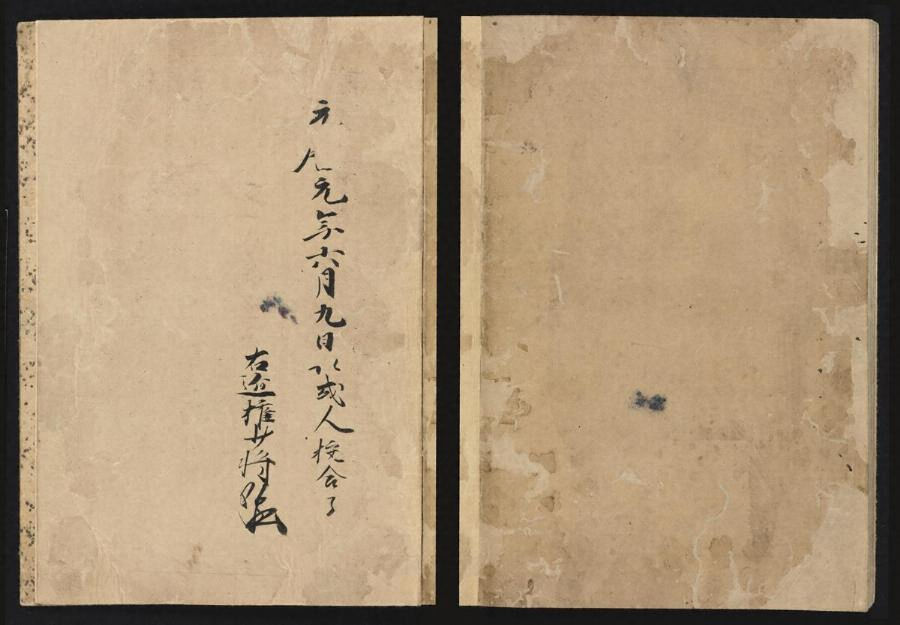 元久元年六月九日以或人校合了
右近権少将